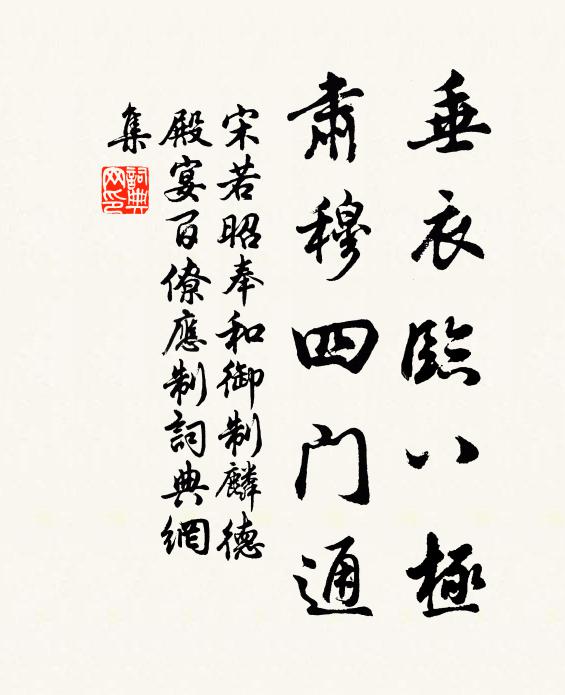 垂衣臨八極
肅穆四门通
宋若昭奉和御制麟德
殿宴百僚應制詞典網
集
詞典
网印